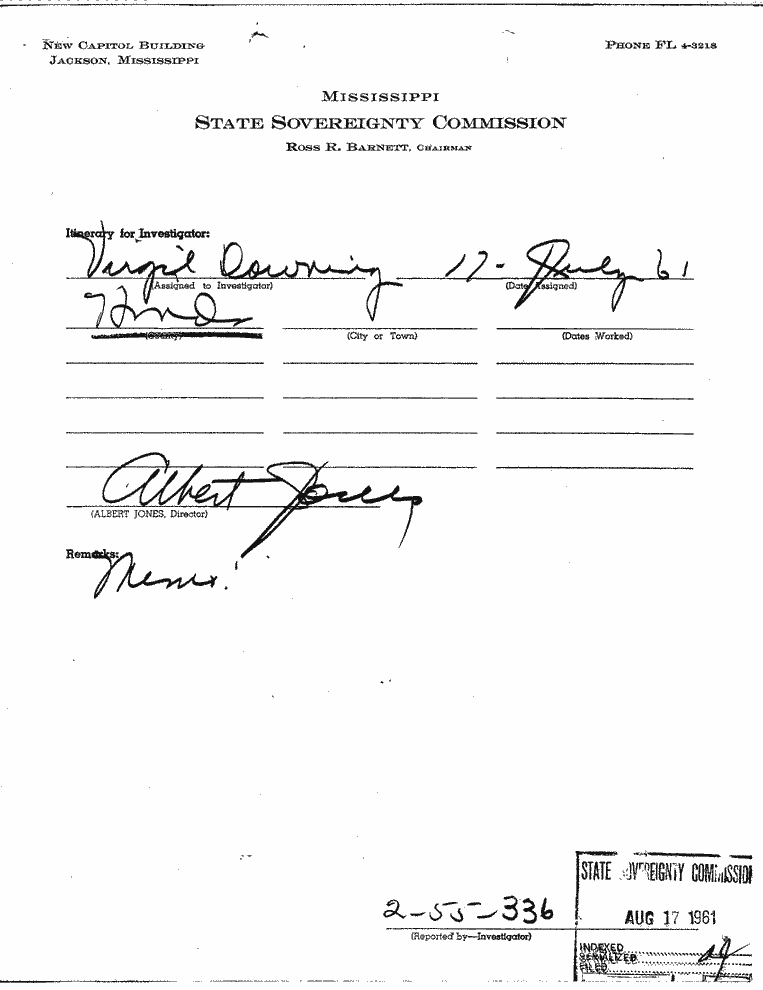 NEW CAPITOL BUILDING
JACKSON, MISSISSIPPI
PHONE FL 4-3218
MISSISSIPPI
STATE SOVEREIGNTY COMMISSION
ROSS R. BARNETT, CHAIRMAN
Itinerary for Investigator:
Virgil Downing 17- July 61
(Assigned to Investigator) (Date Assigned)
Hinds
(County) (City or Town) (Dates Worked)
Albert Jones
(ALBERT JONES, Director)
Remarks:
Memo.
2-55-336
(Reported by—Investigator)
STATE SOVEREIGNTY COMMISSION
AUG 17 1961
INDEXED
SERIALIZED
FILED